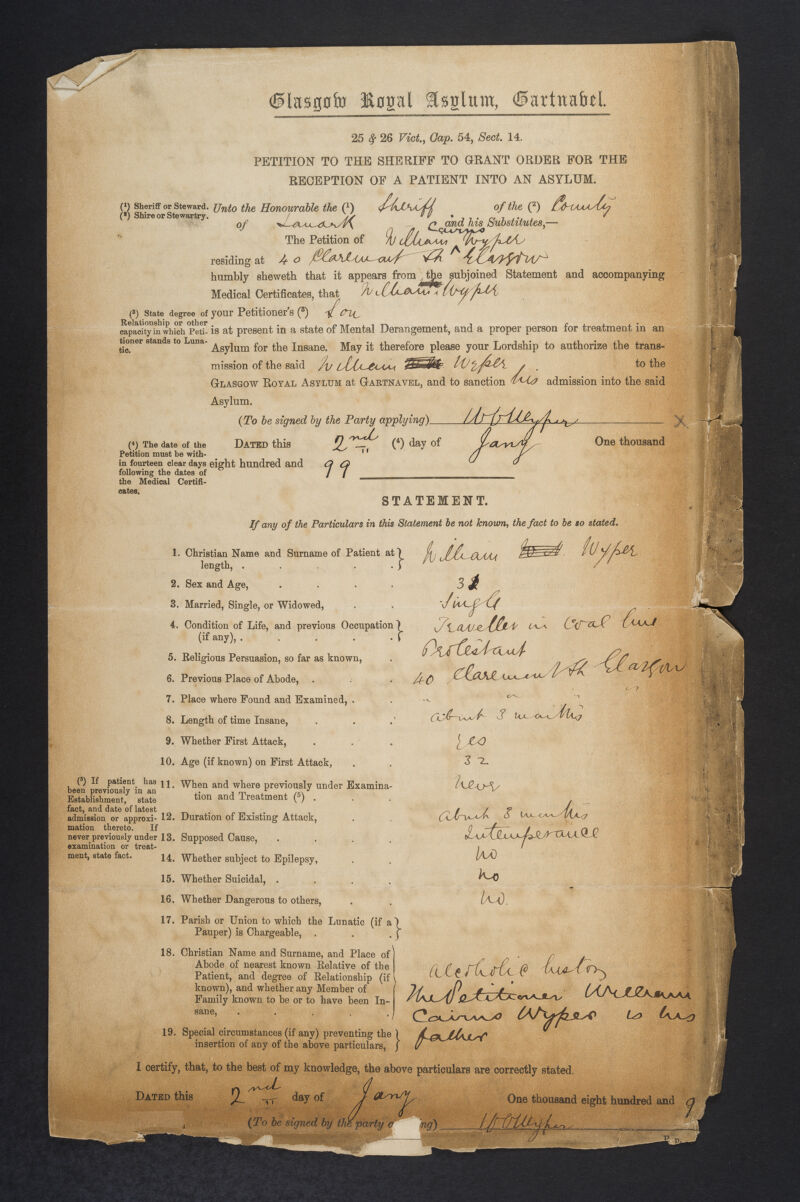 Glasgow Royal Asylum, Gartnabel.
25 & 26 Vict., Cap. 54, Sect. 14.
PETITION TO THE SHERIFF TO GRANT ORDER FOR THE
RECEPTION OF A PATIENT INTO AN ASYLUM.
(1) Sheriff or Steward.
(2) Shire or Stewartry.
Unto the Honourable the (1) Sheriff of the (2) County
of Lanark and his Substitutes,—
The Petition of William Cairns Wyper
residing at 40 Claremont St Glasgow
humbly sheweth that it appears from the subjoined Statement and accompanying
Medical Certificates, that William Wyper
(3) State degree of
Relationship or other
capacity in which Peti-
tioner stands to Luna-
tic.
your Petitioner's (3) Son
is at present in a state of Mental Derangement, and a proper person for treatment in an
Asylum for the Insane. May it therefore please your Lordship to authorize the trans-
mission of the said William Wyper to the
GLASGOW ROYAL ASYLUM at GARTNAVEL, and to sanction his admission into the said
Asylum.
(To be signed by the Party applying) W C Wyper X
(4) The date of the
Petition must be with-
in fourteen clear days
following the dates of
the Medical Certifi-
cates.
DATED this 2nd (4) day of Jany One thousand
eight hundred and 99
STATEMENT.
If any of the Particulars in this Statement be not known, the fact to be so stated.
1. Christian Name and Surname of Patient at
length, . William Wyper
2. Sex and Age, 32
3. Married, Single, or Widowed, Single
4. Condition of Life, and previous Occupation
(if any), . Traveller in Coal line
5. Religious Persuasion, so far as known, Protestant
6. Previous Place of Abode, . 40 Claremont St Glasgow
7. Place where Found and Examined, . " " "
8. Length of time Insane, about 3 months
9. Whether First Attack, yes
10. Age (if known) on First Attack, 32
(5) If patient has
been previously in an
Establishment, state
fact, and date of latest
admission or approxi-
mation thereto. If
never previously under
examination or treat-
ment, state fact.
11. When and where previously under Examina-
tion and Treatment (5) . never
12. Duration of Existing Attack, about 3 months
13. Supposed Cause, Intemperance
14. Whether subject to Epilepsy, no
15. Whether Suicidal, . no
16. Whether Dangerous to others, no.
17. Parish or Union to which the Lunatic (if a
Pauper) is Chargeable, .
18. Christian Name and Surname, and Place of
Abode of nearest known Relative of the
Patient, and degree of Relationship (if
known), and whether any Member of
Family known to be or to have been In-
sane,
alcoholic history
The Petitioner William
Cairns Wyper is his
father
19. Special circumstances (if any) preventing the
insertion of any of the above particulars,
I certify, that, to the best of my knowledge, the above particulars are correctly stated.
DATED this 2nd day of Jany One thousand eight hundred and 9
(To be signed by the party ng) W C Wyper
P. D.